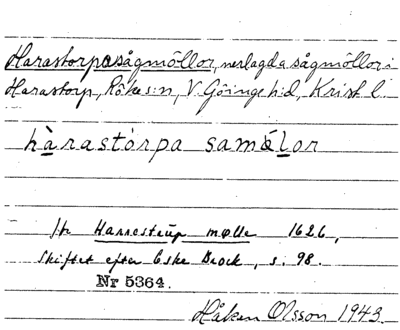 Harastorpasågmöllor, nerlagda sågmöllor i
Harastorp, Röke s:n, V. Göinge h:d, Krist. l.
hàrastórpa samǿlor
Harrestrup mølle 1626,
Skiftet efter Eske Brock, s. 98.
Nr 5364.
Håken Olsson 1943.